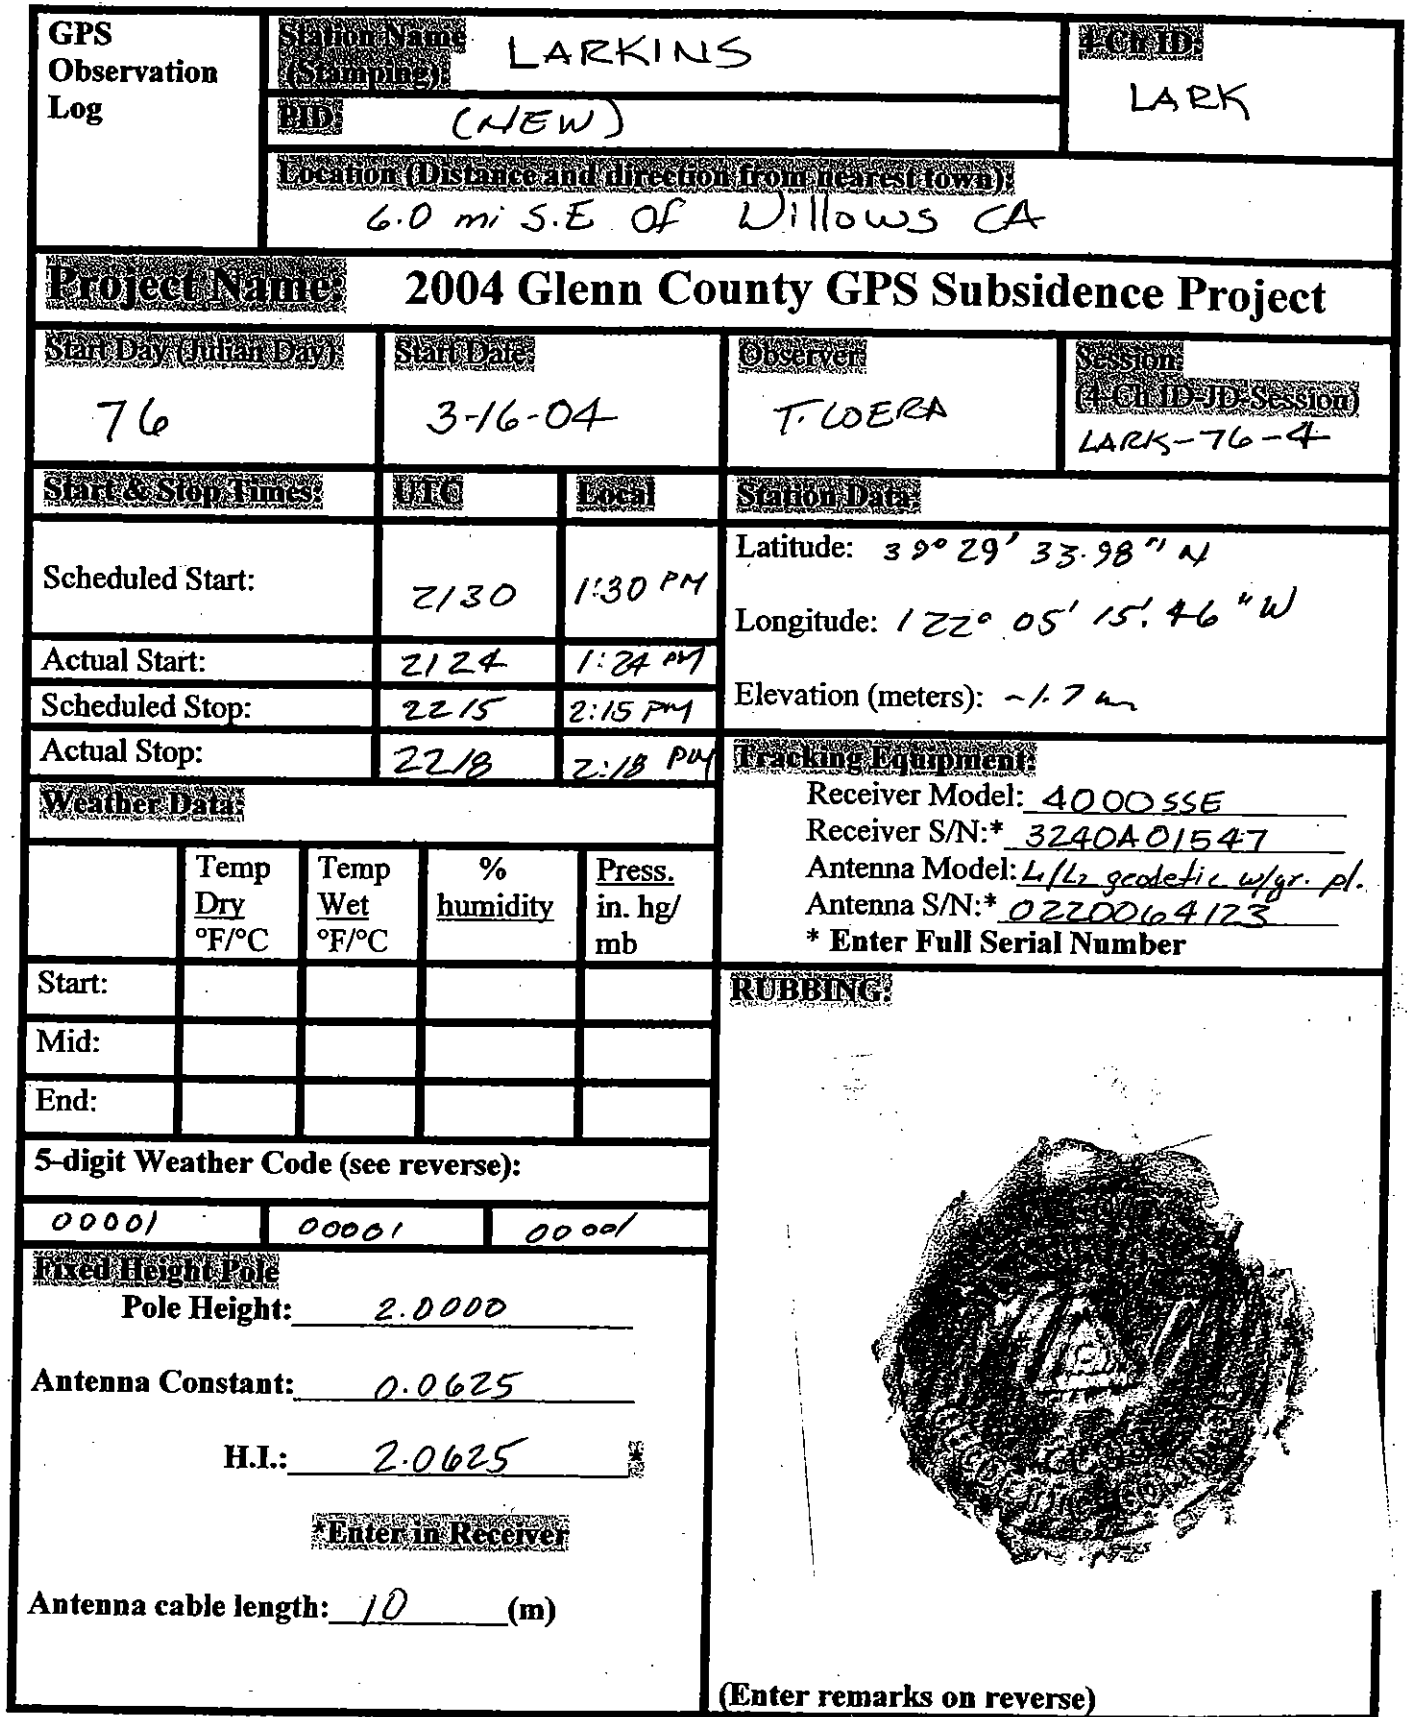 GPS
Observation
Log
Station Name
(Stamping):
LARKINS
4-Ch ID:
LARK
PID:
(NEW)
Location (Distance and direction from nearest town):
6.0 mi S.E of Willows CA
Project Name: 2004 Glenn County GPS Subsidence Project
Start Day (Julian Day):
76
Start Date:
3-16-04
Observer:
T. LOERA
Session:
(4-Ch ID-JD-Session)
LARK-76-4
Start & Stop Times: UTC Local
Scheduled Start: 2130 1:30 PM
Actual Start: 2124 1:24 PM
Scheduled Stop: 2215 2:15 PM
Actual Stop: 2218 2:18 PM
Station Data:
Latitude: 39° 29' 33.98" N
Longitude: 122° 05' 15.46" W
Elevation (meters): ~1.7 m
Tracking Equipment:
Receiver Model: 4000SSE
Receiver S/N:* 3240A01547
Antenna Model: L1/L2 geodetic w/gr. pl.
Antenna S/N:* 0220064123
* Enter Full Serial Number
Weather Data:
Temp
Dry
°F/°C
Temp
Wet
°F/°C
%
humidity
Press.
in. hg/
mb
Start:
Mid:
End:
5-digit Weather Code (see reverse):
00001 00001 00001
Fixed Height Pole
Pole Height: 2.0000
Antenna Constant: 0.0625
H.I.: 2.0625 *
*Enter in Receiver
Antenna cable length: 10 (m)
RUBBING:
(Enter remarks on reverse)